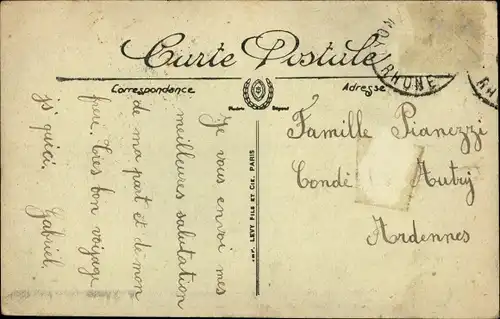 Carte Postale
Correspondance
Adresse
Marque Déposé
LYON
RHONE
RH
Je vous envoi mes
meilleures salutation
de ma part et de mon
frere. Très bon voyage
js'quici.
Gabriel.
IMP. LEVY FILS ET CIE. PARIS
Famille Pianezzi
Condé Autry
Ardennes